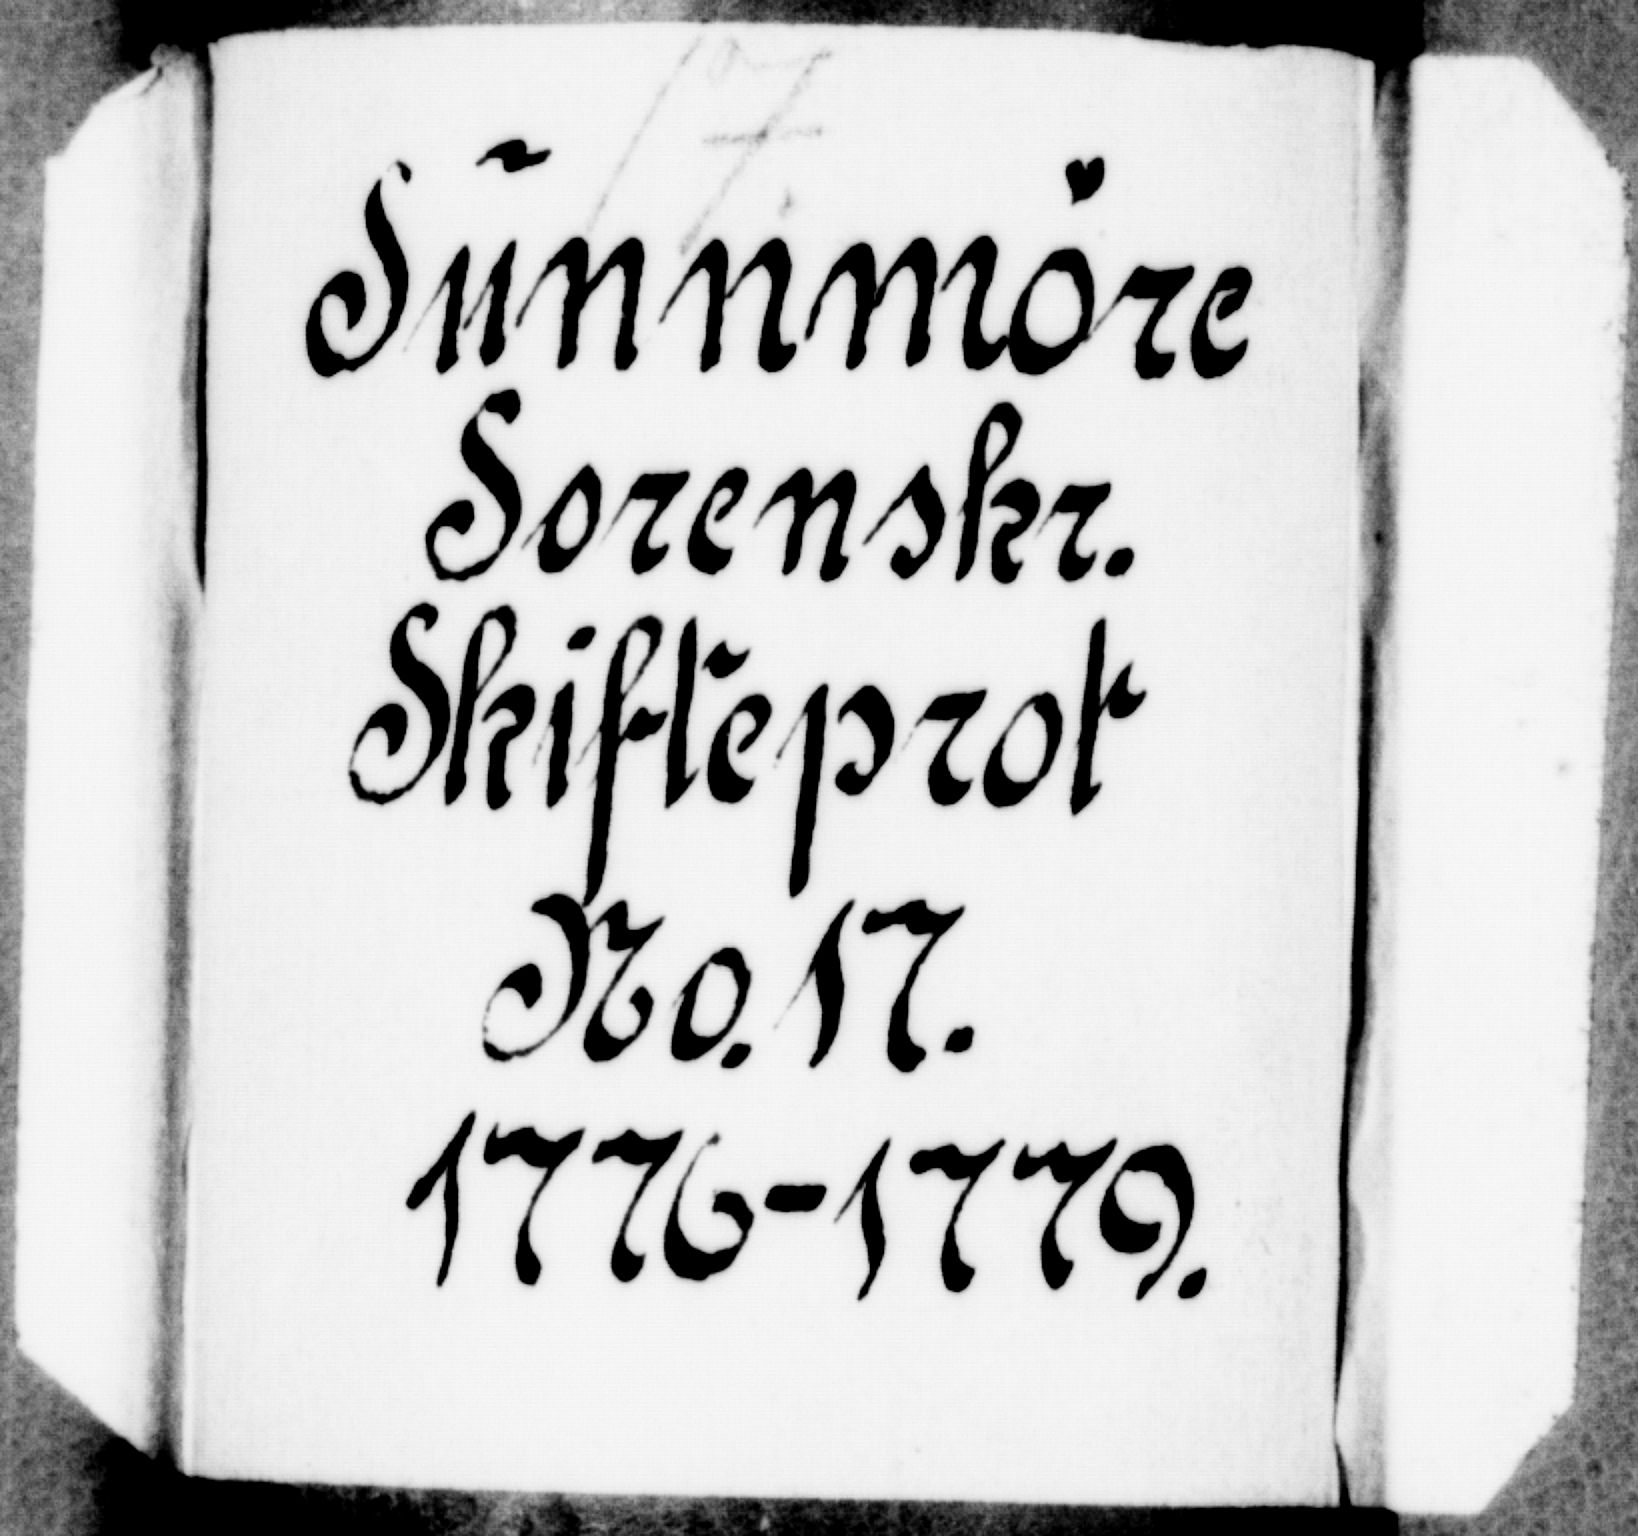 17.
Sünnmöre
Sorenskr.
Skifteprot
No. 17.
1776-1779.